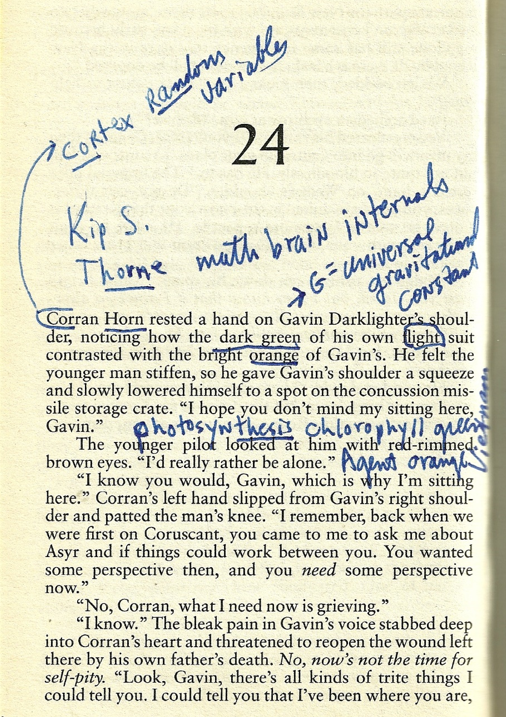 CORTEX RANdoms
VARiables
24
Kip S.
Thorne
math brain internals
G = universal
gravitational
constant
Corran Horn rested a hand on Gavin Darklighter's shoul-
der, noticing how the dark green of his own flight suit
contrasted with the bright orange of Gavin's. He felt the
younger man stiffen, so he gave Gavin's shoulder a squeeze
and slowly lowered himself to a spot on the concussion mis-
sile storage crate. “I hope you don't mind my sitting here,
Gavin.”
photosynthesis chlorophyll green
The younger pilot looked at him with red-rimmed
brown eyes. “I'd really rather be alone.”
Agent orange
Vietnam
“I know you would, Gavin, which is why I'm sitting
here.” Corran's left hand slipped from Gavin's right shoul-
der and patted the man's knee. “I remember, back when we
were first on Coruscant, you came to me to ask me about
Asyr and if things could work between you. You wanted
some perspective then, and you need some perspective
now.”
“No, Corran, what I need now is grieving.”
“I know.” The bleak pain in Gavin's voice stabbed deep
into Corran's heart and threatened to reopen the wound left
there by his own father's death. No, now's not the time for
self-pity. “Look, Gavin, there's all kinds of trite things I
could tell you. I could tell you that I've been where you are,